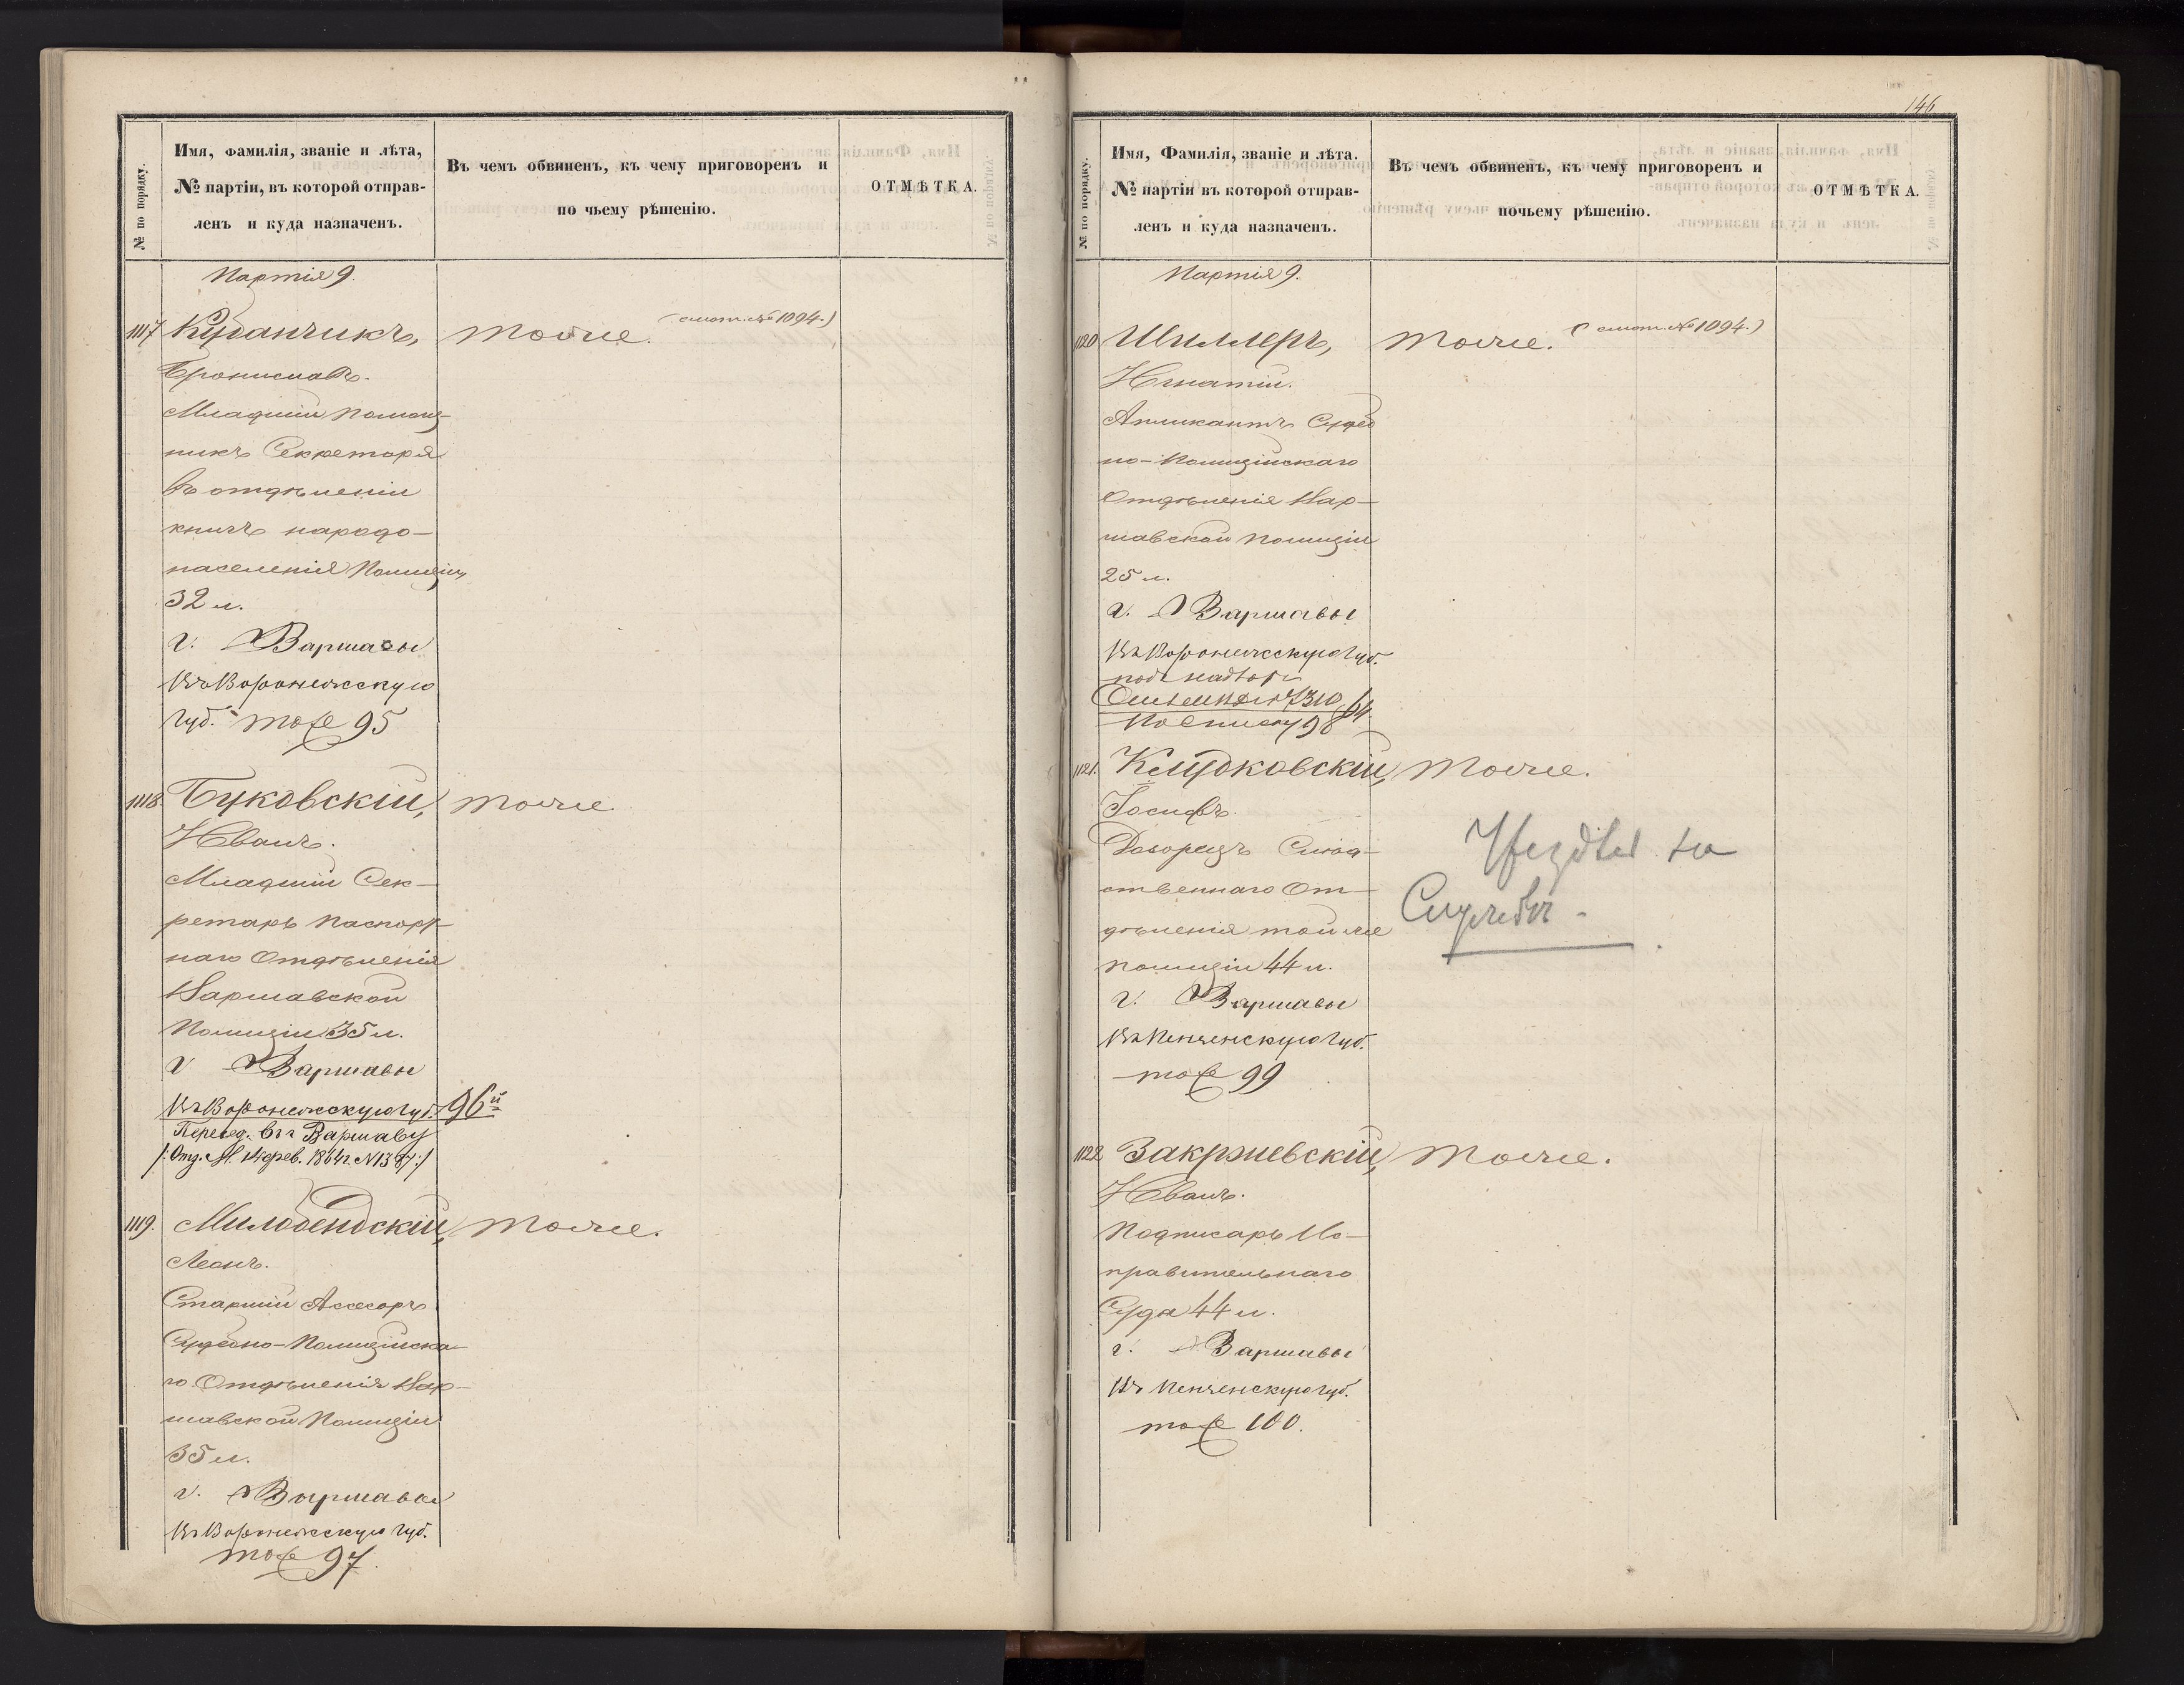 № по порядку.
Имя, Фамилія, званіе и лѣта,
№ партіи, въ которой отправ-
ленъ и куда назначенъ.
Въ чемъ обвиненъ, къ чему приговоренъ и
по чьему рѣшенію.
ОТМѢТКА.
Партія 9.
1117
Бронислав.
тоже. (смот. № 1094.)
Младшій помощ-
никъ Секретаря
въ отдѣленіи
книгъ народо-
населенія Полиціи,
32 л.
г. Варшавы
Въ Воронежскую
Губ. тоже 95
1118. Буковскій, тоже
Иванъ.
Младшій Сек-
ретарь Паспорт-
наго Отдѣленія
Варшавской
Полиціи 35 л.
г. Варшавы
Въ Воронежскую Губ. 96й
Перевед. въ г. Варшаву
1119. Милобендскій, тоже.
Леонъ.
Старшій Ассесоръ
Судебно-Полицейска-
го Отдѣленія Вар-
шавской Полиціи
35 л.
г. Варшавы
Въ Воронежскую Губ.
тоже 97.
146
№ по порядку.
Имя, Фамилія, званіе и лѣта.
№ партіи въ которой отправ-
ленъ и куда назначенъ.
Въ чемъ обвиненъ, къ чему приговоренъ и
почьему рѣшенію.
ОТМѢТКА.
Партія 9.
1120 Шиллеръ, тоже. (смот. № 1094.)
Игнатій.
Апликантъ Судеб
но-Полиційскаго
Отдѣленія Вар-
шавской Полиціи
25 л.
г. Варшавы
Въ Воронежскую Губ.
подъ надзоръ
По списку 98
1121. тоже.
Іосифъ.
Дозорецъ Слѣд-
ственнаго От-
дѣленія той же
полиціи 44 л.
г. Варшавы
Въ Пензенскую Губ.
тоже 99
1122 Закржевскій, тоже.
Иванъ.
Подписарь Ис-
правительнаго
Суда 44 л.
г. Варшавы
Въ Пензенскую Губ.
тоже 100.